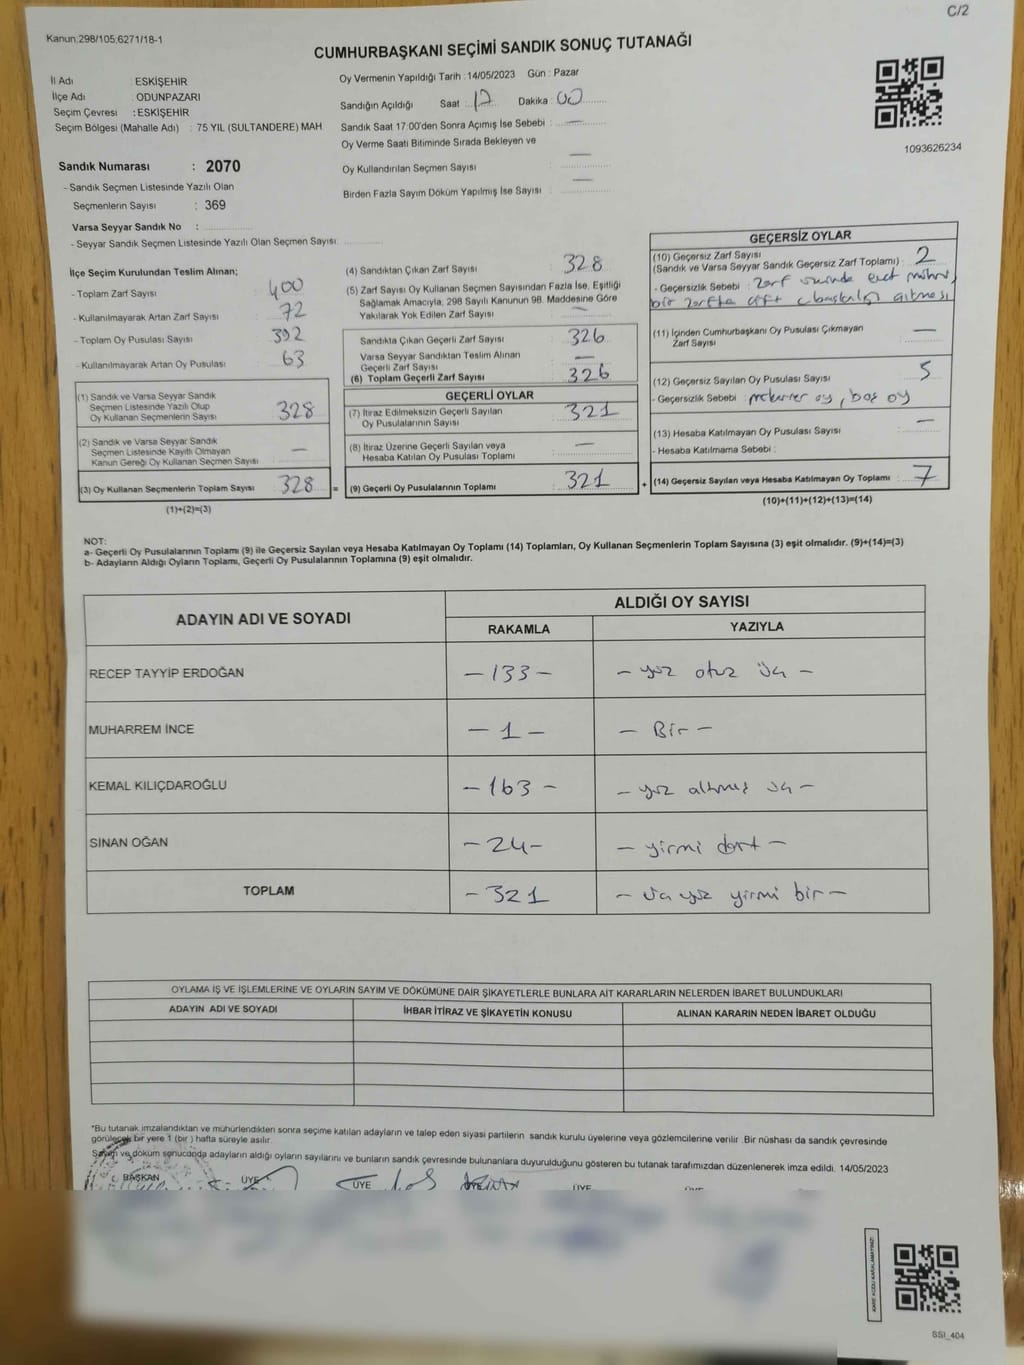 C/2
Kanun:298/105;6271/18-1
CUMHURBAŞKANI SEÇİMİ SANDIK SONUÇ TUTANAĞI
İl Adı : ESKİŞEHİR
İlçe Adı : ODUNPAZARI
Seçim Çevresi : ESKİŞEHİR
Seçim Bölgesi (Mahalle Adı) : 75 YIL (SULTANDERE) MAH
Sandık Numarası : 2070
- Sandık Seçmen Listesinde Yazılı Olan
Seçmenlerin Sayısı : 369
Varsa Seyyar Sandık No :
- Seyyar Sandık Seçmen Listesinde Yazılı Olan Seçmen Sayısı:
Oy Vermenin Yapıldığı Tarih : 14/05/2023 Gün : Pazar
Sandığın Açıldığı Saat : 17 Dakika : 00
Sandık Saat 17:00'den Sonra Açımış İse Sebebi : —
Oy Verme Saati Bitiminde Sırada Bekleyen ve
Oy Kullandırılan Seçmen Sayısı : —
Birden Fazla Sayım Döküm Yapılmış İse Sayısı : —
1093626234
İlçe Seçim Kurulundan Teslim Alınan;
- Toplam Zarf Sayısı : 400
- Kullanılmayarak Artan Zarf Sayısı : 72
- Toplam Oy Pusulası Sayısı : 392
- Kullanılmayarak Artan Oy Pusulası : 63
(1) Sandık ve Varsa Seyyar Sandık
Seçmen Listesinde Yazılı Olup
Oy Kullanan Seçmenlerin Sayısı : 328
(2) Sandık ve Varsa Seyyar Sandık
Seçmen Listesinde Kayıtlı Olmayan
Kanun Gereği Oy Kullanan Seçmen Sayısı : —
(3) Oy Kullanan Seçmenlerin Toplam Sayısı : 328 =
(1)+(2)=(3)
(4) Sandıktan Çıkan Zarf Sayısı : 328
(5) Zarf Sayısı Oy Kullanan Seçmen Sayısından Fazla İse, Eşitliği
Sağlamak Amacıyla; 298 Sayılı Kanunun 98. Maddesine Göre
Yakılarak Yok Edilen Zarf Sayısı : —
Sandıkta Çıkan Geçerli Zarf Sayısı : 326
Varsa Seyyar Sandıktan Teslim Alınan
Geçerli Zarf Sayısı : —
(6) Toplam Geçerli Zarf Sayısı : 326
GEÇERLİ OYLAR
(7) İtiraz Edilmeksizin Geçerli Sayılan
Oy Pusulasının Sayısı : 321
(8) İtiraz Üzerine Geçerli Sayılan veya
Hesaba Katılan Oy Pusulası Toplamı : —
(9) Geçerli Oy Pusulalarının Toplamı : 321 +
GEÇERSİZ OYLAR
(10) Geçersiz Zarf Sayısı
(Sandık ve Varsa Seyyar Sandık Geçersiz Zarf Toplamı) : 2
- Geçersizlik Sebebi : Zarf üzerinde evet mührü,
bir zarfta çift çıkması
(11) İçinden Cumhurbaşkanı Oy Pusulası Çıkmayan
Zarf Sayısı : —
(12) Geçersiz Sayılan Oy Pusulası Sayısı : 5
- Geçersizlik Sebebi : mükerrer oy, boş oy
(13) Hesaba Katılmayan Oy Pusulası Sayısı : —
- Hesaba Katılmama Sebebi :
(14) Geçersiz Sayılan veya Hesaba Katılmayan Oy Toplamı : 7
(10)+(11)+(12)+(13)=(14)
NOT:
a- Geçerli Oy Pusulalarının Toplamı (9) ile Geçersiz Sayılan veya Hesaba Katılmayan Oy Toplamı (14) Toplamları, Oy Kullanan Seçmenlerin Toplam Sayısına (3) eşit olmalıdır. (9)+(14)=(3)
b- Adayların Aldığı Oyların Toplamı, Geçerli Oy Pusulalarının Toplamına (9) eşit olmalıdır.
ADAYIN ADI VE SOYADI
ALDIĞI OY SAYISI
RAKAMLA YAZIYLA
RECEP TAYYİP ERDOĞAN – 133 – – yüz otuz üç –
MUHARREM İNCE – 1 – – Bir –
KEMAL KILIÇDAROĞLU – 163 – – yüz altmış üç –
SİNAN OĞAN – 24 – – yirmi dört –
TOPLAM – 321 – üç yüz yirmi bir –
OYLAMA İŞ VE İŞLEMLERİNE VE OYLARIN SAYIM VE DÖKÜMÜNE DAİR ŞİKAYETLERLE BUNLARA AİT KARARLARIN NELERDEN İBARET BULUNDUKLARI
ADAYIN ADI VE SOYADI İHBAR İTİRAZ VE ŞİKAYETİN KONUSU ALINAN KARARIN NEDEN İBARET OLDUĞU
"Bu tutanak imzalandıktan ve mühürlendikten sonra seçime katılan adayların ve talep eden siyasi partilerin sandık kurulu üyelerine veya gözlemcilerine verilir. Bir nüshası da sandık çevresinde
görülecek bir yere 1 (bir) hafta süreyle asılır.
Sayım ve döküm sonucunda adayların aldığı oyların sayılarını ve bunların sandık çevresinde bulunanlara duyurulduğunu gösteren bu tutanak tarafımızdan düzenlenerek imza edildi. 14/05/2023
BAŞKAN ÜYE ÜYE ÜYE ÜYE
SSI_404